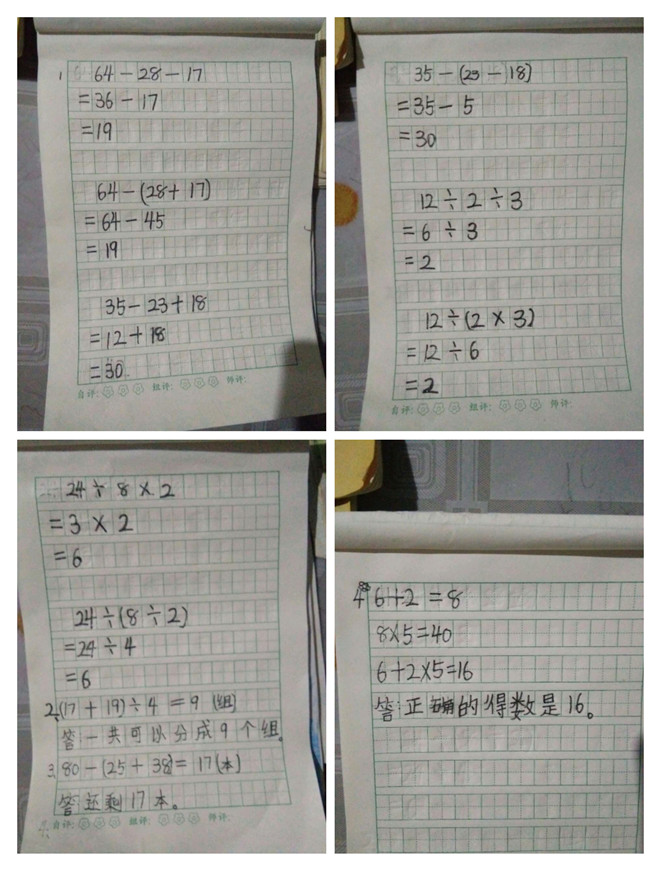 1 64-28-17
=36-17
=19
64-(28+17)
=64-45
=19
35-23+18
=12+18
=30
自评: 组评: 师评:
35-(23-18)
=35-5
=30
12÷2÷3
=6÷3
=2
12÷(2×3)
=12÷6
=2
自评: 组评: 师评:
24÷8×2
=3×2
=6
24÷(8÷2)
=24÷4
=6
2.(17+19)÷4=9(组)
答:一共可以分成9个组。
3.80-(25+38)=17(本)
答:还剩17本。
自评: 组评: 师评:
4 6+2=8
8×5=40
6+2×5=16
答:正确的得数是16。